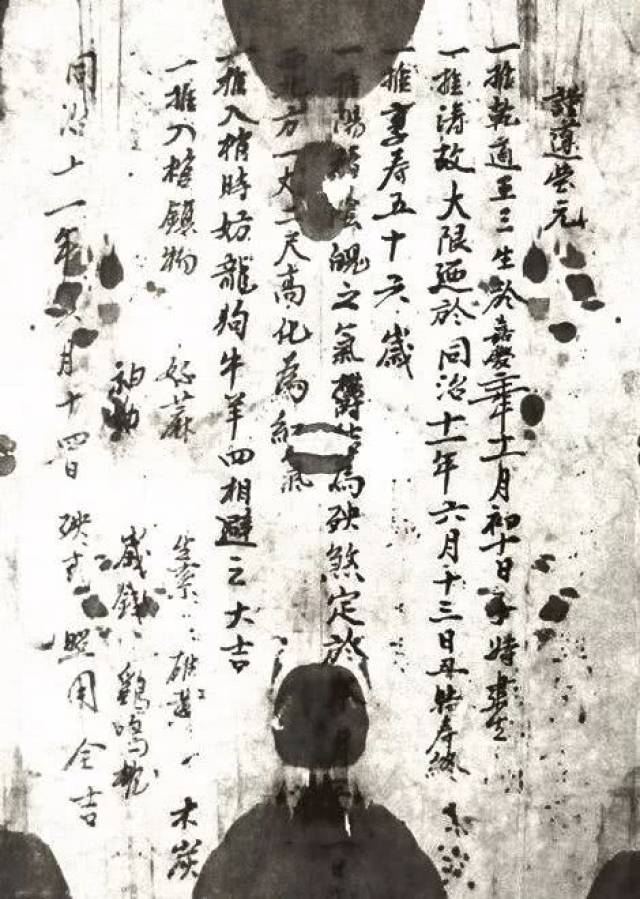 謹遵
一推乾道王三生於嘉慶年十一月初十日子時
一推濤故大限迺於同治十一年六月十三日丑時壽終
一推享寿五十六歲
一推陽陰魄之氣為殃煞定於
方一丈二尺高化為紅氣
一推入梢時妨龍狗牛羊四相避之大吉
一推入棺鎮物 好蔴 生索 木炭
神 歲錢 鷄鳴枕
同治十一年六月十四日 殃式 照用全吉